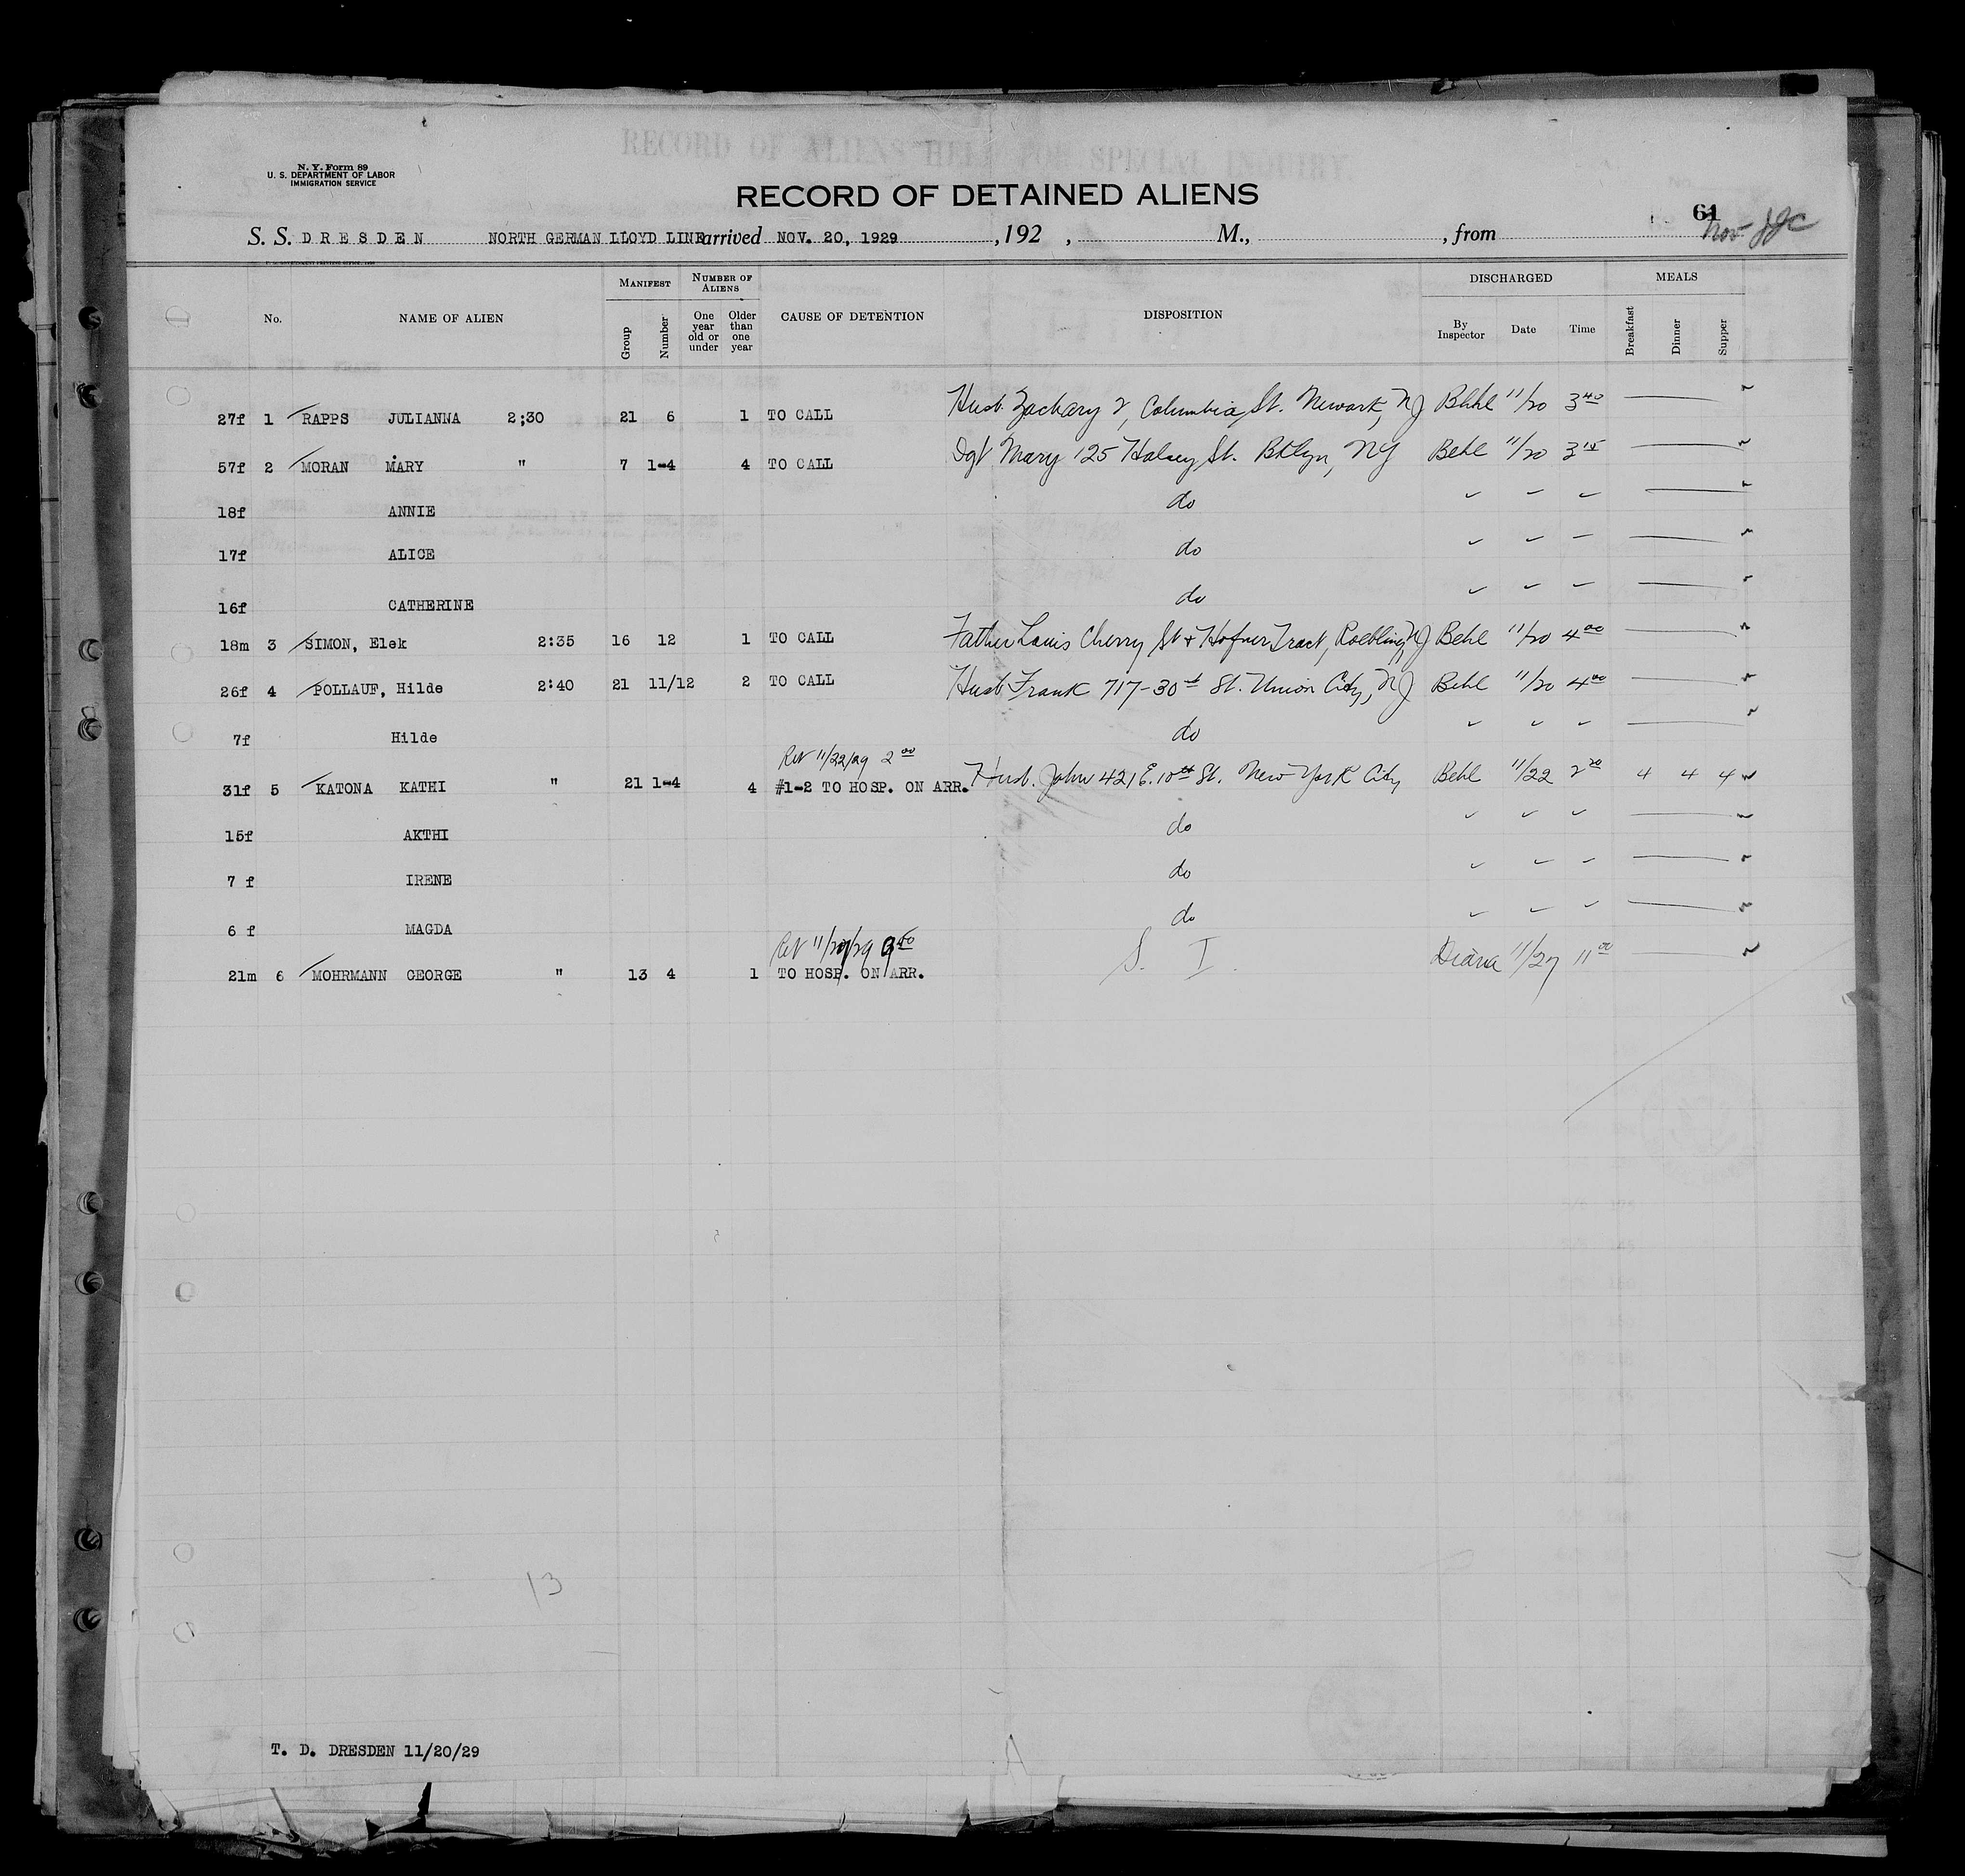 N. Y. Form 89
U. S. DEPARTMENT OF LABOR
IMMIGRATION SERVICE
RECORD OF ALIENS HELD FOR SPECIAL INQUIRY.
RECORD OF DETAINED ALIENS
61
S. S. DRESDEN NORTH GERMAN LLOYD LINE arrived NOV. 20, 1929 , 192 , M., , from Nov
No. NAME OF ALIEN MANIFEST Group Number NUMBER OF ALIENS One year old or under Older than one year CAUSE OF DETENTION DISPOSITION DISCHARGED By Inspector Date Time MEALS Breakfast Dinner Supper
27f 1 RAPPS JULIANNA 2;30 21 6 1 TO CALL Husb. Zachary 2, Columbia St. Newark, NJ Behl 11/20 3 40
57f 2 MORAN MARY " 7 1-4 4 TO CALL Dgt Mary 125 Halsey St. Bklyn, NY Behl 11/20 3 15
18f ANNIE do
17f ALICE do
16f CATHERINE do
18m 3 SIMON, Elek 2:35 16 12 1 TO CALL Father Louis Cherry St + Hofner Tract, Roebling, NJ Behl 11/20 4 00
26f 4 POLLAUF, Hilde 2:40 21 11/12 2 TO CALL Husb Frank 717-30th St. Union City, NJ Behl 11/20 4 00
7f Hilde do
Ret 11/22/29 2 00
31f 5 KATONA KATHI " 21 1-4 4 #1-2 TO HOSP. ON ARR. Husb. John 421 E. 10th St. New York City Behl 11/22 2 20 4 4 4
15f AKTHI do
7 f IRENE do
6 f MAGDA do
Ret
21m 6 MOHRMANN GEORGE " 13 4 1 TO HOSP. ON ARR. S. I. Diana 11/27 11 00
13
T. D. DRESDEN 11/20/29